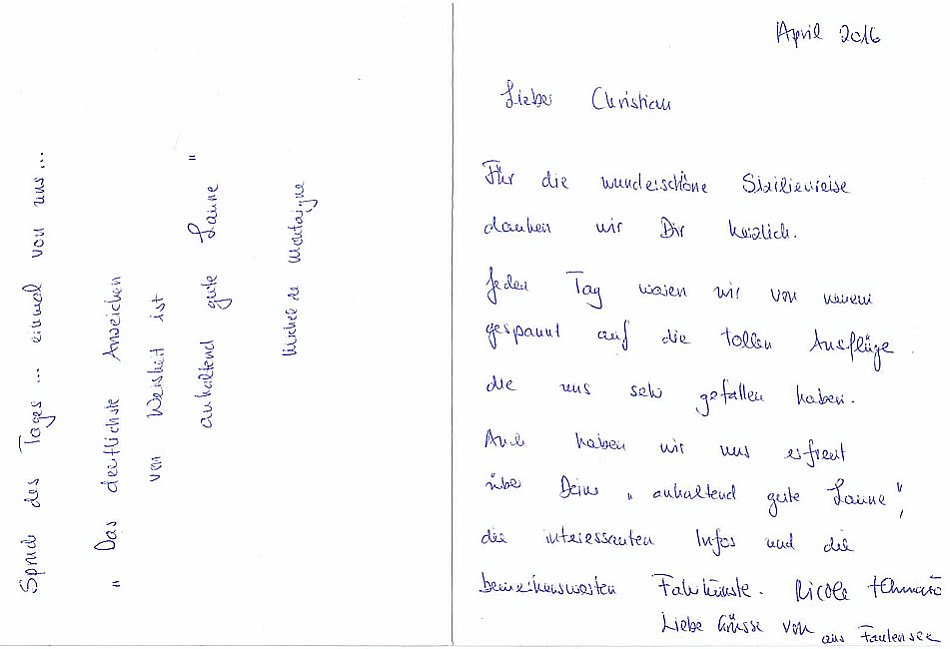 Spruch des Tages ... einmal von uns ...
" Das deutlichste Anzeichen
von Weisheit ist
anhaltend gute Laune "
Michel de Montaigne
April 2016
Lieber Christian
Für die wunderschöne Sizilienreise
danken wir Dir herzlich.
Jeden Tag waren wir von neuem
gespannt auf die tollen Ausflüge
die uns sehr gefallen haben.
Auch haben wir uns erfreut
über Deine „ anhaltend gute Laune ",
die interessanten Infos und die
bemerkenswerten Fahrkünste. Nicole +
Liebe Grüsse von aus Faulensee